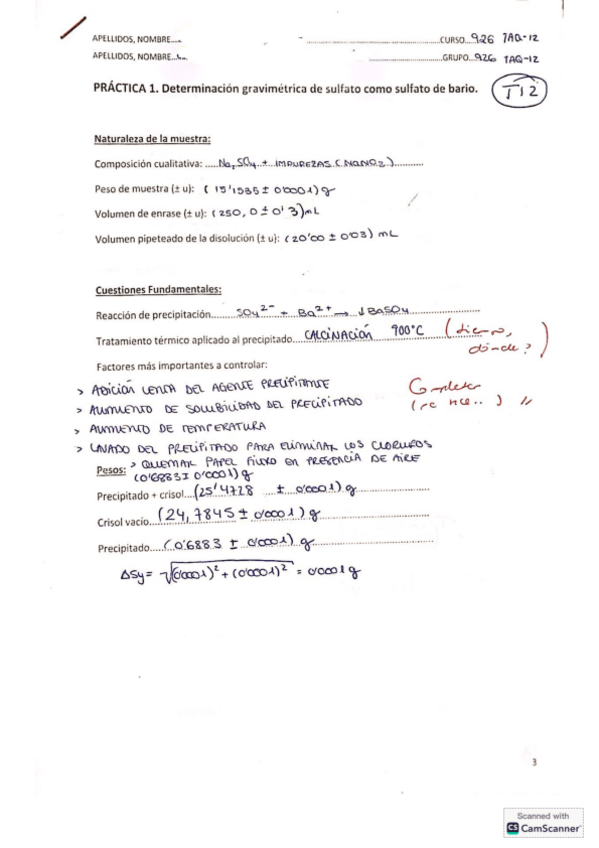 APELLIDOS, NOMBRE.... ....CURSO...926 TAQ-12
APELLIDOS, NOMBRE.... ....GRUPO...926 TAQ-12
PRÁCTICA 1. Determinación gravimétrica de sulfato como sulfato de bario. T12
Naturaleza de la muestra:
Composición cualitativa: .....Na2SO4 + IMPUREZAS
Peso de muestra (± u): ( ± 0'0001) g
Volumen de enrase (± u): (250,0 ± 0'3) mL
Volumen pipeteado de la disolución (± u): (20'00 ± 0'03) mL
Cuestiones Fundamentales:
Reacción de precipitación........SO4 2- + Ba2+ → ↓BaSO4
Tratamiento térmico aplicado al precipitado....CALCINACIÓN 900°C (tiempo,
dónde?)
Factores más importantes a controlar:
> ADICIÓN LENTA DEL AGENTE PRECIPITANTE Completar
> AUMENTO DE SOLUBILIDAD DEL PRECIPITADO
> AUMENTO DE TEMPERATURA
> LAVADO DEL PRECIPITADO PARA ELIMINAR LOS CLORUROS
Pesos: > QUEMAR PAPEL FILTRO EN PRESENCIA DE AIRE
(0'6883 ± 0'0001) g
Precipitado + crisol...(25'4728 ± 0'0001) g
Crisol vacío....(24,7845 ± 0'0001) g
Precipitado.....(0'6883 ± 0'0001) g
ΔSy = √(0'0001)² + (0'0001)² = 0'0001 g
3
Scanned with
CS CamScanner